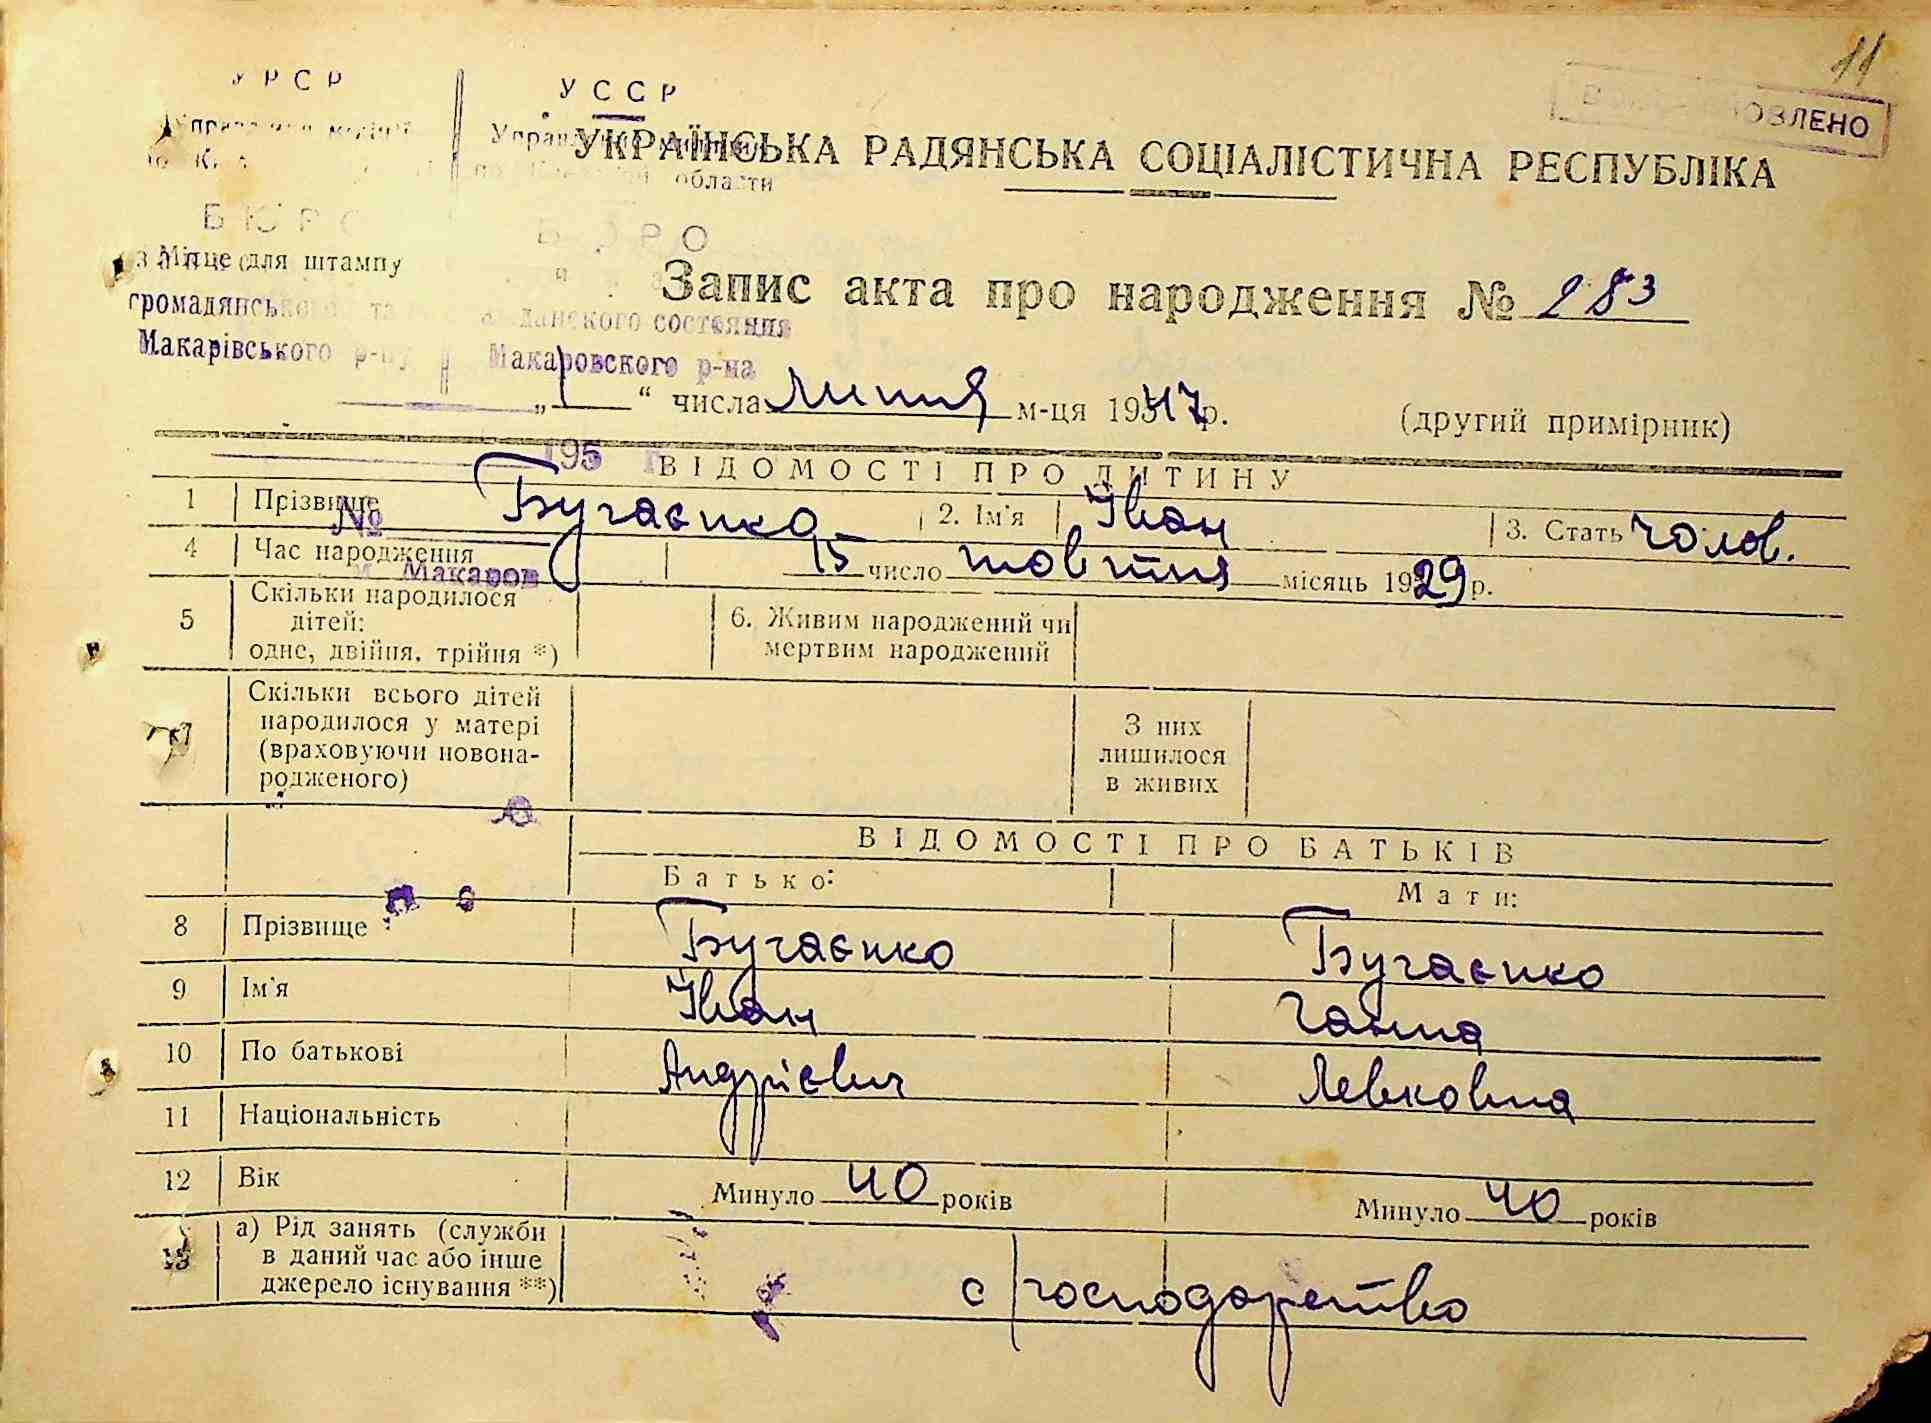 11
УРСР УССР
ОВЛЕНО
УКРАЇНСЬКА РАДЯНСЬКА СОЦІАЛІСТИЧНА РЕСПУБЛІКА
області
БЮРО БЮРО
Місце для штампу
Запис акта про народження № 283
громадянського та данского состояния
Макарівського р-ну Макаровского р-на
„1“ числа липня м-ця 1947р.
(другий примірник)
195
ВІДОМОСТІ ПРО ДИТИНУ
1 Прізвище Бугаєнко 2. Ім'я Іван 3. Стать чолов.
№
4 Час народження 15 число жовтня місяць 1929 р.
м. Макаров
5 Скільки народилося дітей: одне, двійня, трійня *) 6. Живим народжений чи мертвим народжений
7 Скільки всього дітей народилося у матері (враховуючи новона-родженого) З них лишилося в живих
ВІДОМОСТІ ПРО БАТЬКІВ
Батько: Мати:
8 Прізвище Бугаєнко Бугаєнко
9 Ім'я Іван Ганна
10 По батькові Андрієвич Левковна
11 Національність
12 Вік Минуло 40 років Минуло 40 років
13 а) Рід занять (служби в даний час або інше джерело існування **) с/господарство